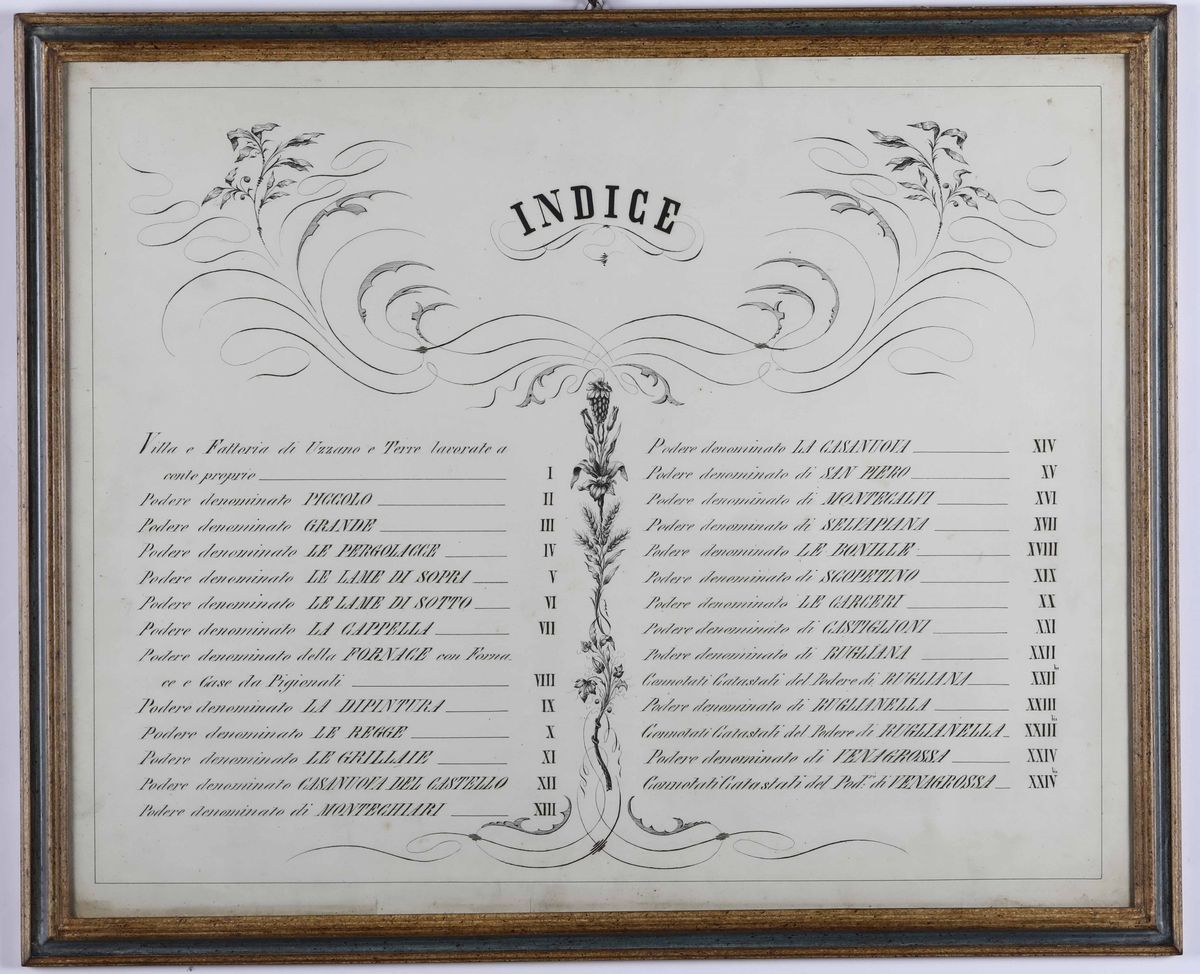 INDICE
Villa e Fattoria di Uzzano e Terre lavorate a
conto proprio I
Podere denominato PICCOLO II
Podere denominato GRANDE III
Podere denominato LE PERGOLACCE IV
Podere denominato LE LAME DI SOPRA V
Podere denominato LE LAME DI SOTTO VI
Podere denominato LA CAPPELLA VII
Podere denominato della FORNACE con Forna-
ce e Case da Pigionali VIII
Podere denominato LA DIPINTURA IX
Podere denominato LE REGGE X
Podere denominato LE GRILLAIE XI
Podere denominato CASANUOVA DEL CASTELLO XII
Podere denominato di MONTECHIARI XIII
Podere denominato LA CASANUOVA XIV
Podere denominato di SAN PIERO XV
Podere denominato di MONTECALVI XVI
Podere denominato di SELVAPIANA XVII
Podere denominato LE BONILLE XVIII
Podere denominato di SCOPETINO XIX
Podere denominato LE CARCERI XX
Podere denominato di CASTIGLIONI XXI
Podere denominato di BUGLIANA XXII
Connotati Catastali del Podere di BUGLIANA XXII bis
Podere denominato di BUGLIANELLA XXIII
Connotati Catastali del Podere di BUGLIANELLA XXIII bis
Podere denominato di VENAGROSSA XXIV
Connotati Catastali del Pod.e di VENAGROSSA XXIV bis